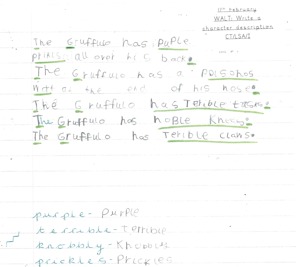 11th February
WALT: Write a
character description
The Gruffulo has puple
prikls all over his back.
The Gruffulo has a poisonos
wort on the end of his nose.
The Gruffulo has Terible
The Gruffulo has noble
The Gruffulo has Terible claws.
purple - Purple
terrible - Terrible
knobbly - Knobbly
prickles - Prickles